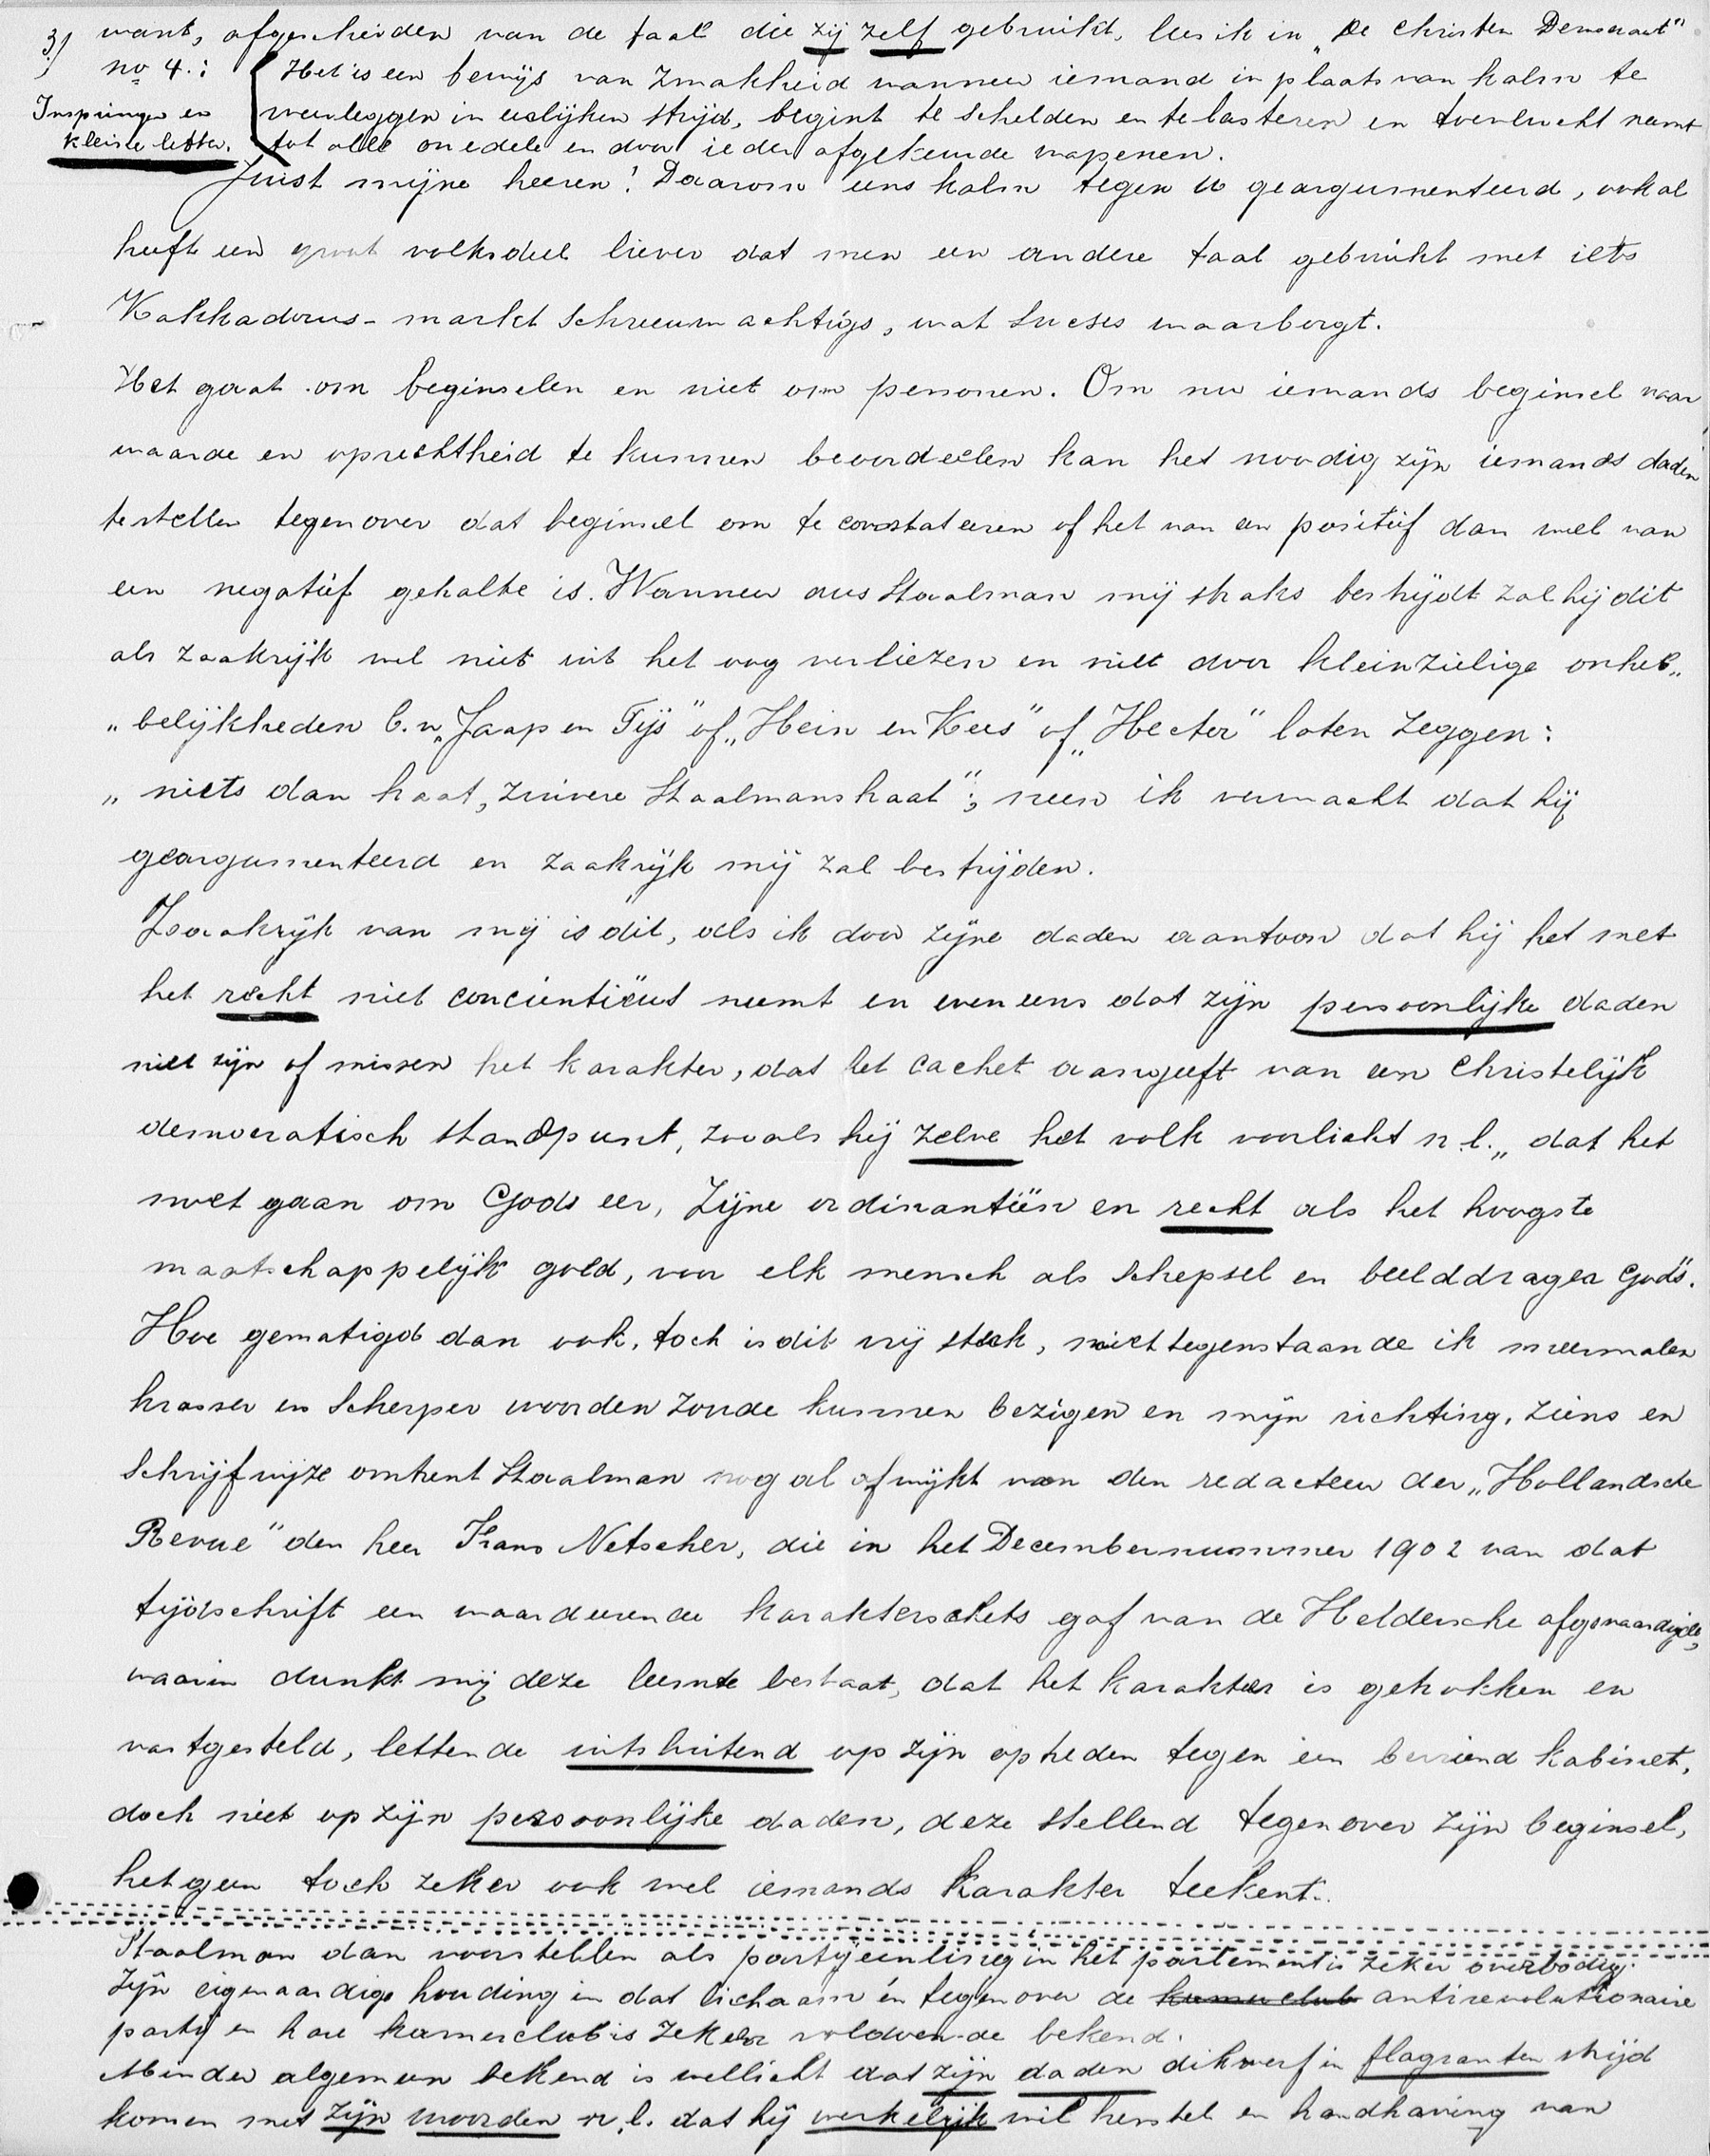 3) want, afgescheiden van de taal die zij zelf gebruikt, lees ik in „De Christen Democraat"
no 4.: Het is een bewijs van zwakheid wanneer iemand in plaats van kalm te
Inspringen en weerleggen in eerlijken strijd, begint te schelden en te lasteren en toevlucht neemt
kleine letter. tot alle onedele en door ieder afgekeurde wapenen.
Juist mijne heeren! Daarom eens kalm tegen U geargumenteerd, ook al
heeft een groot volksdeel liever dat men een andere taal gebruikt met iets
Kokkadorus-markt schreeuwachtigs, wat succes waarborgt.
Het gaat om beginselen en niet om personen. Om nu iemands beginsel naar
waarde en oprechtheid te kunnen beoordeelen kan het noodig zijn iemands daden
te stellen tegenover dat beginsel om te constateeren of het van een positief dan wel van
een negatief gehalte is. Wanneer dus Staalman mij straks bestrijdt zal hij dit
als zaakrijk wel niet uit het oog verliezen en niet door kleinzielige onheb„
„belijkheden b.v. „Jaap en Tijs" of „Hein en Kees" of „Hector" laten zeggen:
„niets dan haat, zuivere Staalmanshaat"; neen ik verwacht dat hij
geargumenteerd en zaakrijk mij zal bestrijden.
Zaakrijk van mij is dit, als ik door zijne daden aantoon dat hij het met
het recht niet conciëntieus neemt en eveneens dat zijn persoonlijke daden
niet zijn of missen het karakter, dat het cachet aangeeft van een Christelijk
democratisch standpunt, zooals hij zelve het volk voorlicht n.l. „dat het
moet gaan om Gods eer, Zijne ordinantiën en recht als het hoogste
maatschappelijk goed, voor elk mensch als schepsel en beelddrager Gods".
Hoe gematigd dan ook, toch is dit vrij sterk, niettegenstaande ik meermalen
krasser en scherper woorden zoude kunnen bezigen en mijn richting, ziens en
schrijfwijze omtrent Staalman nog al afwijkt van den redacteur der „Hollandsche
Revue" den heer Frans Netscher, die in het Decembernummer 1902 van dat
tijdschrift een waardeerende karakterschets gaf van de Heldersche afgevaardigde,
waarin dunkt mij deze leemte bestaat, dat het karakter is getrokken en
vastgesteld, lettende uitsluitend op zijn optreden tegen een bevriend kabinet,
doch niet op zijn persoonlijke daden, deze stellend tegenover zijn beginsel,
hetgeen toch zeker ook wel iemands karakter teekent.
Staalman dan voorstellen als partijeenling in het parlement is zeker overbodig.
Zijn eigenaardige houding in dat lichaam én tegenover de kamerclub antirevolutionaire
partij en hare kamerclub is zeker voldoende bekend.
Minder algemeen bekend is wellicht dat zijn daden dikwerf in flagranten strijd
komen met zijn woorden n.l. dat hij werkelijk wil herstel en handhaving van